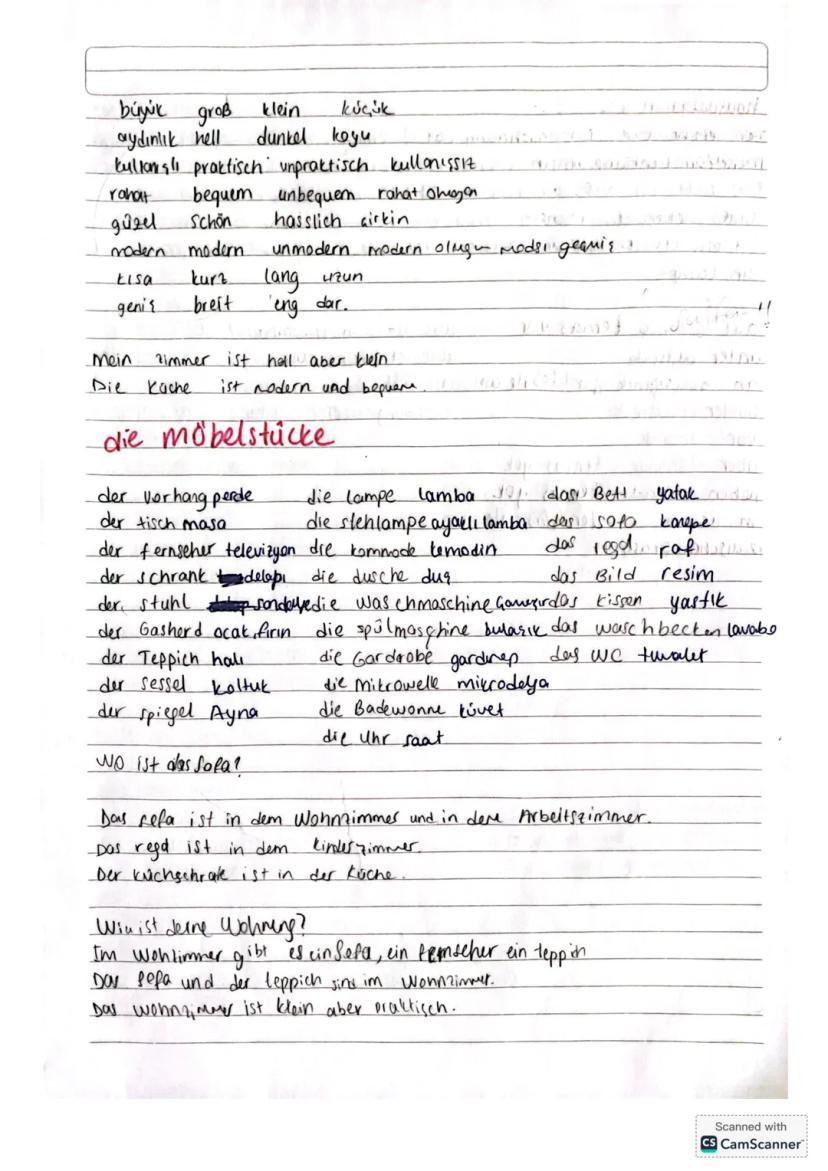 büyük groß klein küçük
aydınlık hell dunkel koyu
kullanışlı praktisch unpraktisch kullanıssız
rahat bequem unbequem rahat olmayan
güzel schön hasslich çirkin
modern modern unmodern modern olmayan modsı geçmiş
kısa kurz lang uzun
geniş breit eng dar.
Mein zimmer ist hell aber klein
Die Kuche ist modern und bequem.
die möbelstücke
der Vorhang perde die lampe lamba das Bett yatak
der tisch masa die stehlampe ayaklı lamba das sofa kanepe
der fernseher televizyon die kommode komodin das regal raf
der schrank dolapı die dusche duş das Bild resim
der stuhl sandalye die waschmaschine das kissen yastık
der Gasherd ocak, fırın die spülmaschine bulaşık das waschbecken lavabo
der Teppich halı die Gardrobe gardırop das WC tuvalet
der sessel koltuk die Mikrowelle mikrodalga
der spiegel Ayna die Badewanne küvet
die Uhr saat
WO ist das Sofa?
Das sofa ist in dem Wohnzimmer und in dem Arbeitszimmer.
Das regal ist in dem kinderzimmer.
Der küchschrak ist in der Küche.
Wie ist deine Wohnung?
Im Wohlimmer gibt es ein Sofa, ein Fernseher ein teppich
Das sofa und der teppich sind im Wohnzimmer.
Das wohnzimmer ist klein aber praktisch.
Scanned with
CS CamScanner